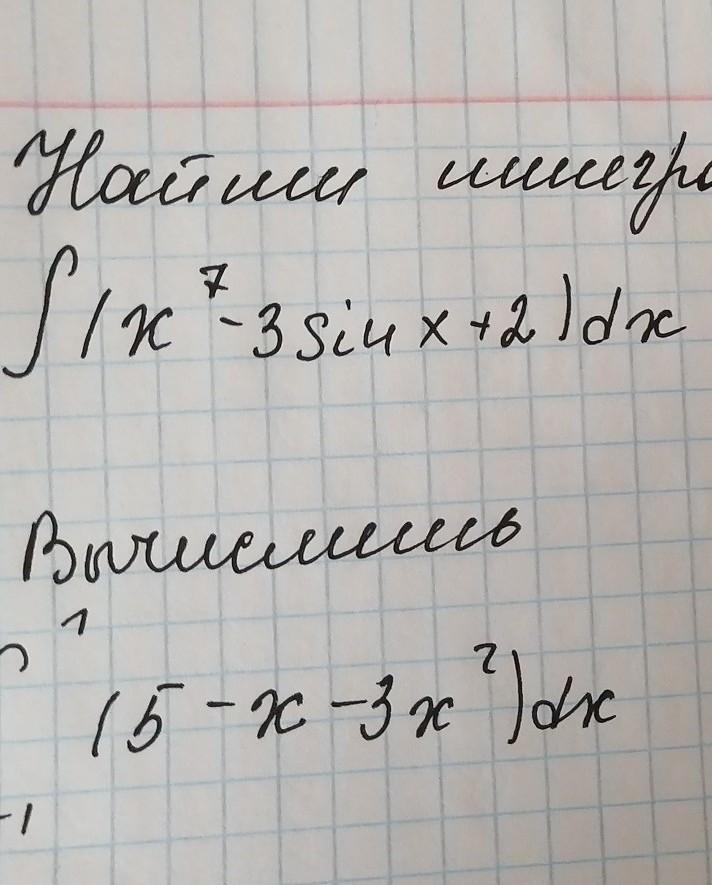 Найти интегра
∫(x⁷-3sinx+2)dx
Вычислить
∫₋₁¹(5-x-3x²)dx